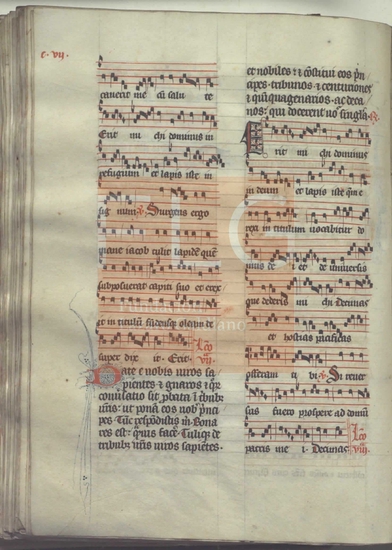 c. vii.
caverit me cū salu te
Erit mi chi dominus in
refugium et lapis iste in
sig num. Surgens ergo
mane iacob tulit lapidē quē
subposuerat capiti suo et erex
it in titulū fūdensqz oleum de
super dix it. Erit. Lco
vii.
Date e vobis viros sa
pientes et gnaros
conversatio sit pbata ī tribub
vris ut ponā eos vob pnci
pes. Tūc respōdistis m. Bona
res est quā vis facē. Tuliqz de
tribubz vris viros sapiētes
et nobiles et cōstitui eos pn
cipes tribunos et centuriones
et quīquagenarios ac deca
nos qui docerent vos singla. R
Erit mi chi dominus
in deum et lapis iste quē e
rexi in titulum vocabitur do
mus de i et de universis
que dederis mi chi decimas
et hostias pacificas
offeram ti bi. Si rever
sus fuero prospere ad domū
patris me i. Decimas. Lco
viii.